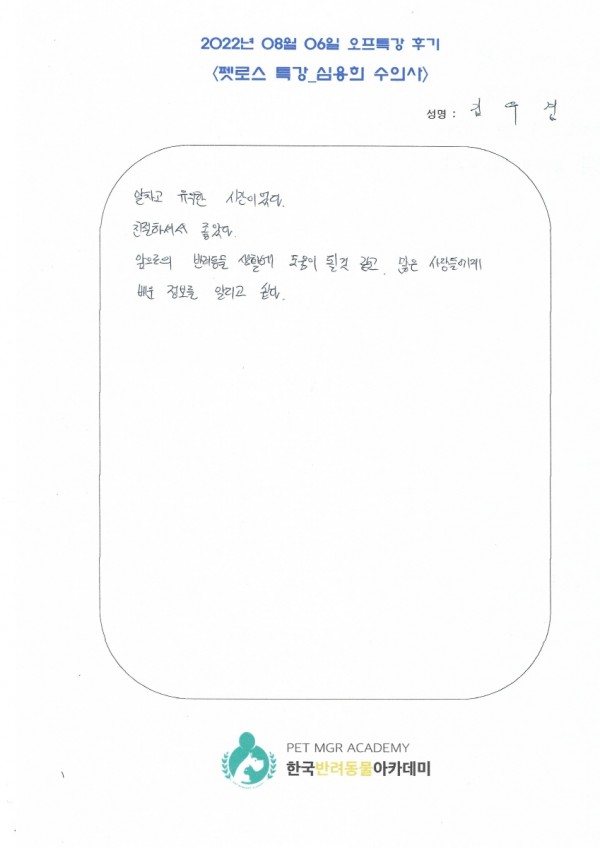 2022년 08월 06일 오프특강 후기
<펫로스 특강_심용희 수의사>
성명 : 김 우 섭
알차고 유익한 시간이였다.
친절하셔서 좋았다.
앞으로의 반려동물 생활에 도움이 될것 같고, 많은 사람들에게
배운 정보를 알리고 싶다.
PET MGR ACADEMY
한국반려동물아카데미